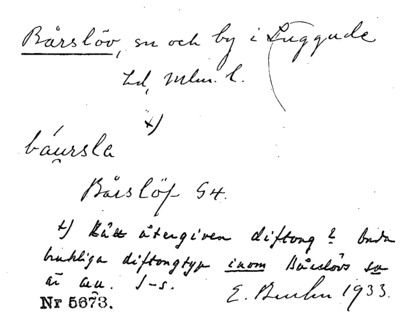 Bårslöv, sn och by i Luggude
hd, Mlm. l.
x)
báu̯rsla
Bårslöf G4.
x) Rätt återgiven diftong? Enda
brukliga diftongtyp inom Bårslövs sn
är au. I-s.
Nr 5673. E. 1933.